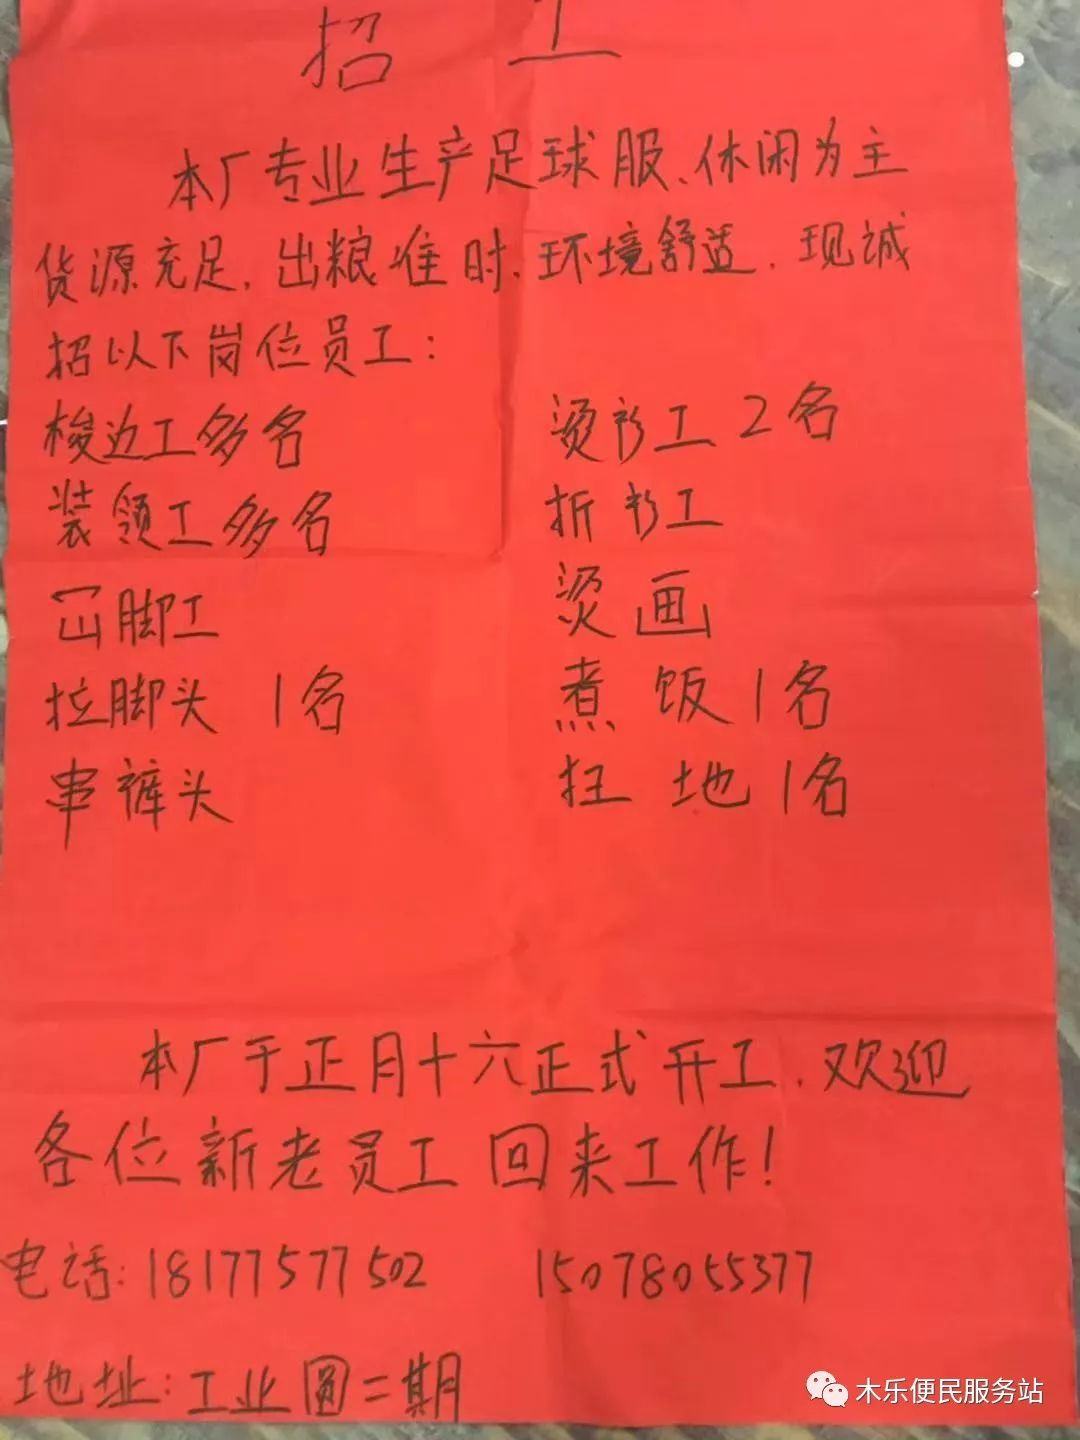 招工
本厂专业生产足球服、休闲为主
货源充足,出粮准时,环境舒适,现诚
招以下岗位员工:
梭边工多名
烫衫工2名
装领工多名
折衫工
脚工
烫画
拉脚头 1名
煮饭1名
串裤头
扫地1名
本厂于正月十六正式开工,欢迎
各位新老员工回来工作!
电话:18177577502 15078055377
地址:工业圆二期
木乐便民服务站